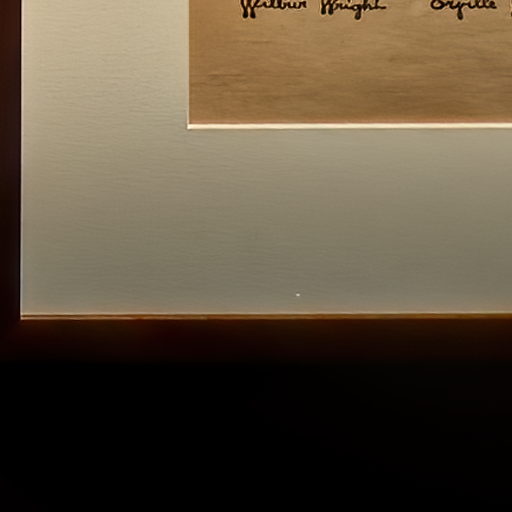 Wilbur Wright Orville